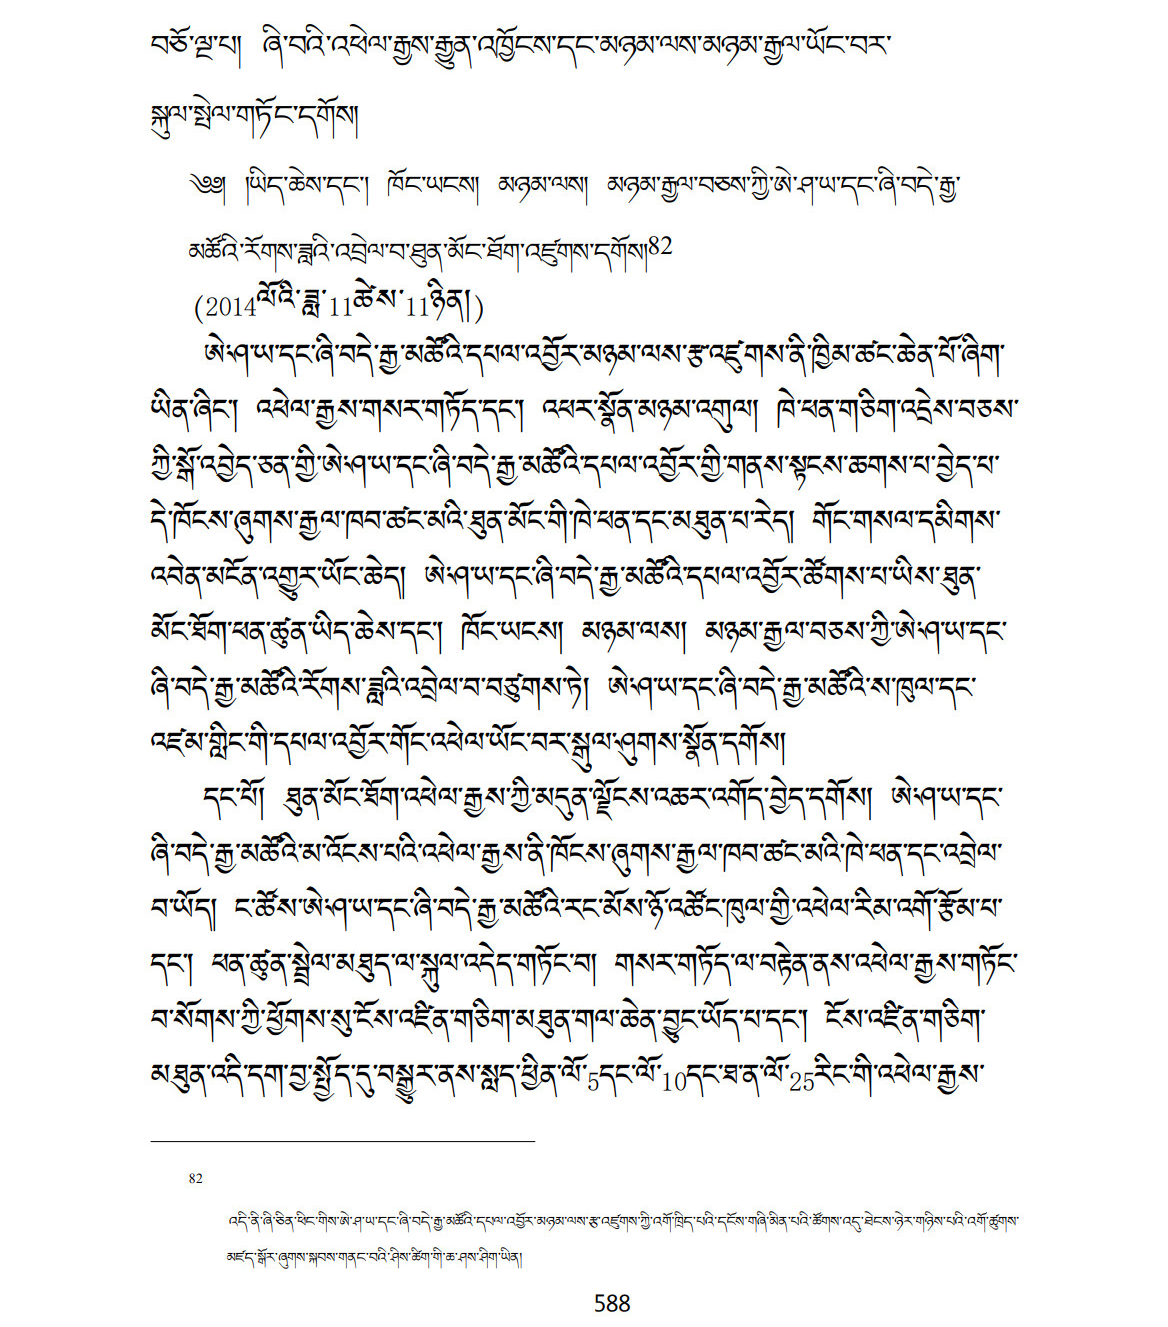 བཅོ་ལྔ་པ།  ཞི་བའི་འཕེལ་རྒྱས་རྒྱུན་འཁྱོངས་དང་མཉམ་ལས་མཉམ་རྒྱལ་ཡོང་བར་
སྐུལ་སྤེལ་གཏོང་དགོས།
༄༅།  །ཡིད་ཆེས་དང་།  ཁོང་ཡངས།  མཉམ་ལས།  མཉམ་རྒྱལ་བཅས་ཀྱི་ཨེ་ཤ་ཡ་དང་ཞི་བདེ་རྒྱ་
མཚོའི་རོགས་ཟླའི་འབྲེལ་བ་ཐུན་མོང་ཐོག་འཛུགས་དགོས།82
(2014ལོའི་ཟླ་11ཚེས་11ཉིན།)
ཨེ་ཤ་ཡ་དང་ཞི་བདེ་རྒྱ་མཚོའི་དཔལ་འབྱོར་མཉམ་ལས་རྩ་འཛུགས་ནི་ཁྱིམ་ཚང་ཆེན་པོ་ཞིག་
ཡིན་ཞིང་།  འཕེལ་རྒྱས་གསར་གཏོད་དང་།  འཕར་སྣོན་མཉམ་འགུལ།  ཁེ་ཕན་གཅིག་འདྲེས་བཅས་
ཀྱི་སྒོ་འབྱེད་ཅན་གྱི་ཨེ་ཤ་ཡ་དང་ཞི་བདེ་རྒྱ་མཚོའི་དཔལ་འབྱོར་གྱི་གནས་སྟངས་ཆགས་པ་བྱེད་པ་
དེ་ཁོངས་ཞུགས་རྒྱལ་ཁབ་ཚང་མའི་ཐུན་མོང་གི་ཁེ་ཕན་དང་མཐུན་པ་རེད།  གོང་གསལ་དམིགས་
འབེན་མངོན་འགྱུར་ཡོང་ཆེད།  ཨེ་ཤ་ཡ་དང་ཞི་བདེ་རྒྱ་མཚོའི་དཔལ་འབྱོར་ཚོགས་པ་ཡིས་ཐུན་
མོང་ཐོག་ཕན་ཚུན་ཡིད་ཆེས་དང་།  ཁོང་ཡངས།  མཉམ་ལས།  མཉམ་རྒྱལ་བཅས་ཀྱི་ཨེ་ཤ་ཡ་དང་
ཞི་བདེ་རྒྱ་མཚོའི་རོགས་ཟླའི་འབྲེལ་བ་བཙུགས་ཏེ།  ཨེ་ཤ་ཡ་དང་ཞི་བདེ་རྒྱ་མཚོའི་ས་ཁུལ་དང་
འཛམ་གླིང་གི་དཔལ་འབྱོར་གོང་འཕེལ་ཡོང་བར་སྒུལ་ཤུགས་སྣོན་དགོས།
དང་པོ།  ཐུན་མོང་ཐོག་འཕེལ་རྒྱས་ཀྱི་མདུན་ལྗོངས་འཆར་འགོད་བྱེད་དགོས།  ཨེ་ཤ་ཡ་དང་
ཞི་བདེ་རྒྱ་མཚོའི་མ་འོངས་པའི་འཕེལ་རྒྱས་ནི་ཁོངས་ཞུགས་རྒྱལ་ཁབ་ཚང་མའི་ཁེ་ཕན་དང་འབྲེལ་
བ་ཡོད།  ང་ཚོས་ཨེ་ཤ་ཡ་དང་ཞི་བདེ་རྒྱ་མཚོའི་རང་མོས་ཉོ་འཚོང་ཁུལ་གྱི་འཕེལ་རིམ་འགོ་རྩོམ་པ་
དང་།  ཕན་ཚུན་སྦྲེལ་མཐུད་ལ་སྐུལ་འདེད་གཏོང་བ།  གསར་གཏོད་ལ་བརྟེན་ནས་འཕེལ་རྒྱས་གཏོང་
བ་སོགས་ཀྱི་ཕྱོགས་སུ་ངོས་འཛིན་གཅིག་མཐུན་གལ་ཆེན་བྱུང་ཡོད་པ་དང་།  ངོས་འཛིན་གཅིག་
མཐུན་འདི་དག་བྱ་སྤྱོད་དུ་བསྒྱུར་ནས་སླད་ཕྱིན་ལོ་5དང་ལོ་10དང་ཐ་ན་ལོ་25རིང་གི་འཕེལ་རྒྱས་
82
འདི་ནི་ཞི་ཅིན་ཕིང་གིས་ཨེ་ཤ་ཡ་དང་ཞི་བདེ་རྒྱ་མཚོའི་དཔལ་འབྱོར་མཉམ་ལས་རྩ་འཛུགས་ཀྱི་འགོ་ཁྲིད་པའི་དངོས་གཞི་མིན་པའི་ཚོགས་འདུ་ཐེངས་ཉེར་གཉིས་པའི་འགོ་ཚུགས་
མཛད་སྒོར་ཞུགས་སྐབས་གནང་བའི་ཤིས་ཚིག་གི་ཆ་ཤས་ཤིག་ཡིན།
588